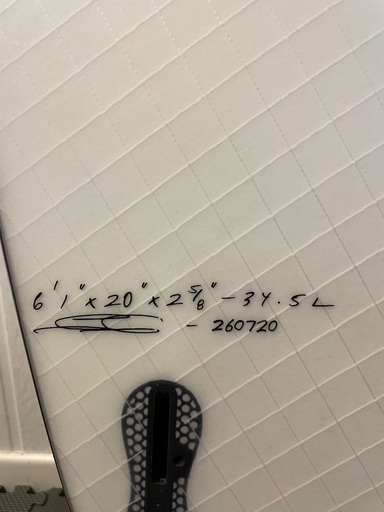 6'1" x 20" x 2 5/8" - 34.5 L
- 260720